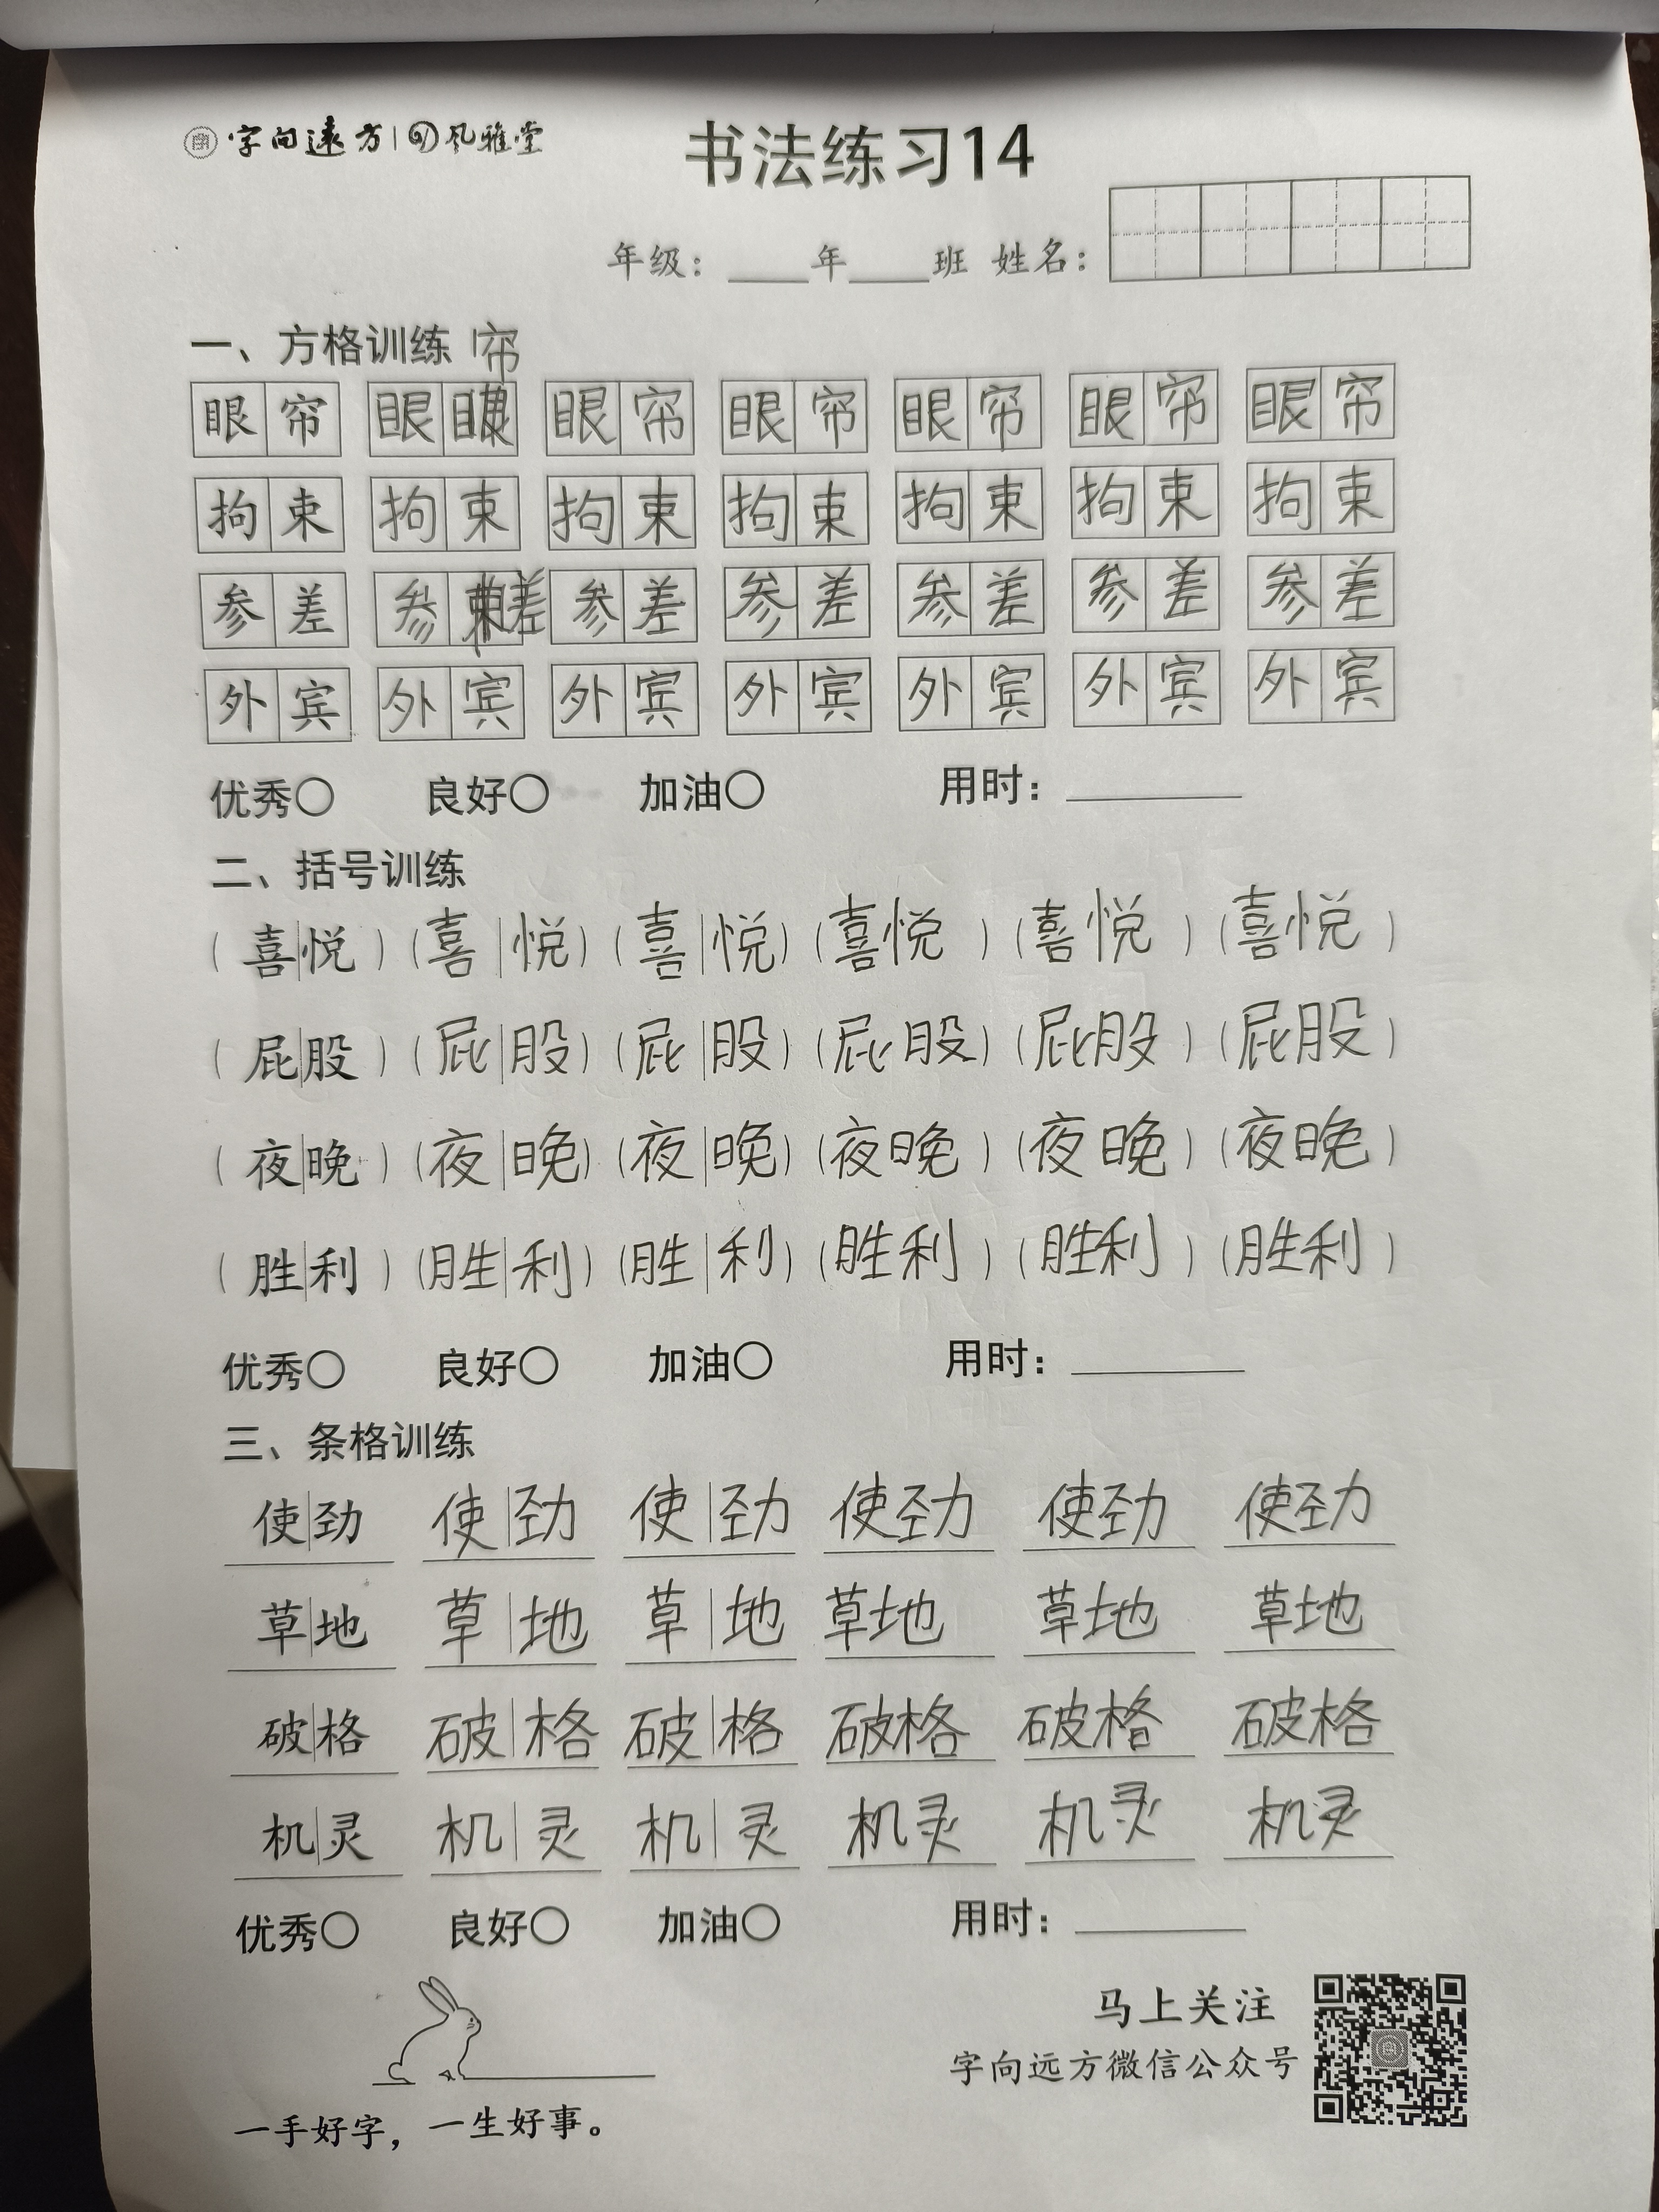 字向远方 风雅堂
书法练习14
年级：____年____班 姓名：
一、方格训练 帘
眼帘 眼 眼帘 眼帘 眼帘 眼帘 眼帘
拘束 拘束 拘束 拘束 拘束 拘束 拘束
参差 参差 参差 参差 参差 参差 参差
外宾 外宾 外宾 外宾 外宾 外宾 外宾
优秀○ 良好○ 加油○ 用时：______
二、括号训练
（喜|悦）（喜|悦）（喜|悦）（喜悦）（喜悦）（喜悦）
（屁|股）（屁|股）（屁|股）（屁股）（屁股）（屁股）
（夜|晚）（夜|晚）（夜|晚）（夜晚）（夜晚）（夜晚）
（胜|利）（胜|利）（胜|利）（胜利）（胜利）（胜利）
优秀○ 良好○ 加油○ 用时：______
三、条格训练
使|劲 使|劲 使|劲 使劲 使劲 使劲
草|地 草|地 草|地 草地 草地 草地
破|格 破|格 破|格 破格 破格 破格
机|灵 机|灵 机|灵 机灵 机灵 机灵
优秀○ 良好○ 加油○ 用时：______
马上关注
字向远方微信公众号
一手好字，一生好事。